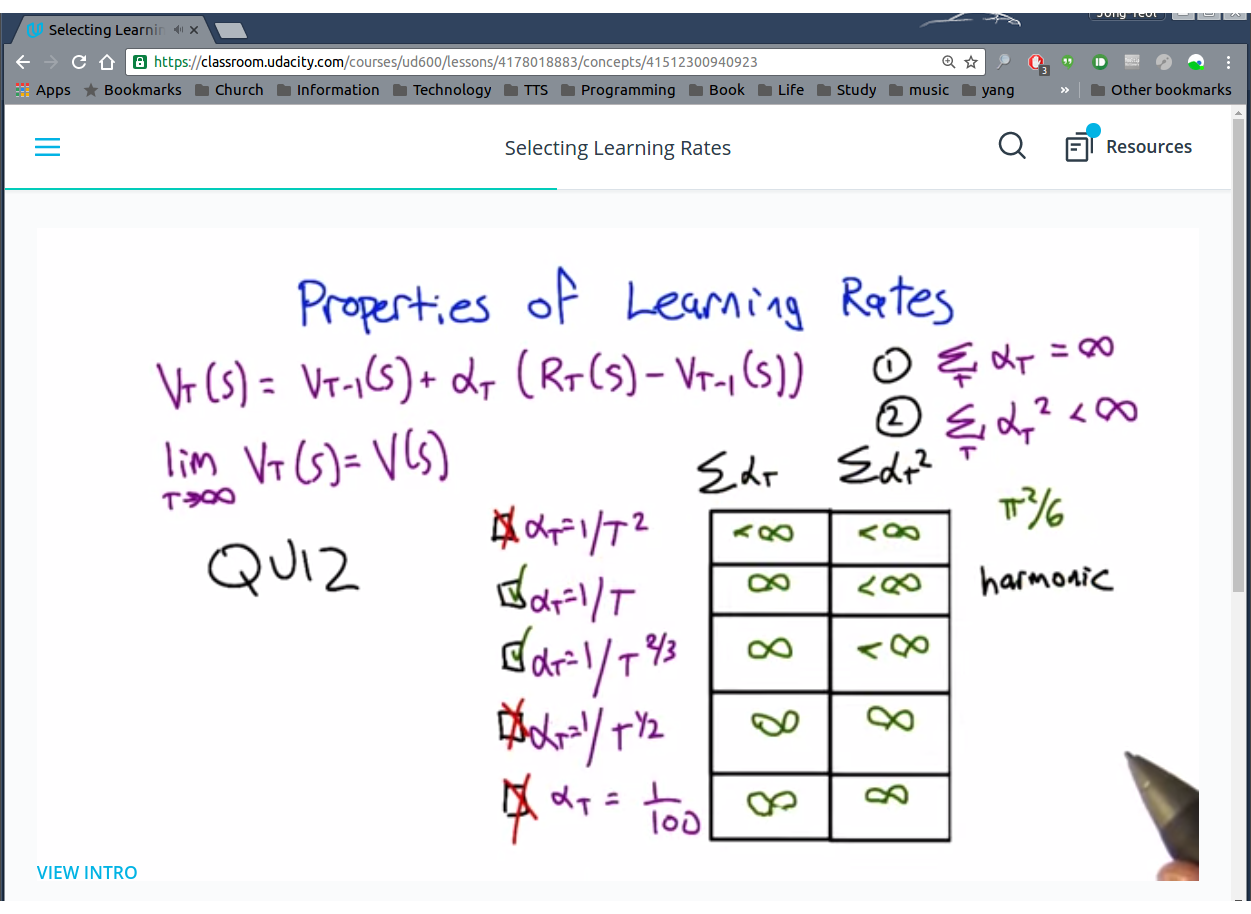 Selecting Learnin
Jong Yeol
https://classroom.udacity.com/courses/ud600/lessons/4178018883/concepts/41512300940923
3
Apps Bookmarks Church Information Technology TTS Programming Book Life Study music yang » Other bookmarks
Selecting Learning Rates
Resources
Properties of Learning Rates
V_T(S) = V_T-1(S) + α_T (R_T(S) - V_T-1(S))
① Σ_T α_T = ∞
② Σ_T α_T² < ∞
lim T→∞ V_T(S) = V(S)
Σα_T Σα_T²
QUIZ
α_T = 1/T² <∞ <∞ π²/6
α_T = 1/T ∞ <∞ harmonic
α_T = 1/T^2/3 ∞ <∞
α_T = 1/T^1/2 ∞ ∞
α_T = 1/100 ∞ ∞
VIEW INTRO